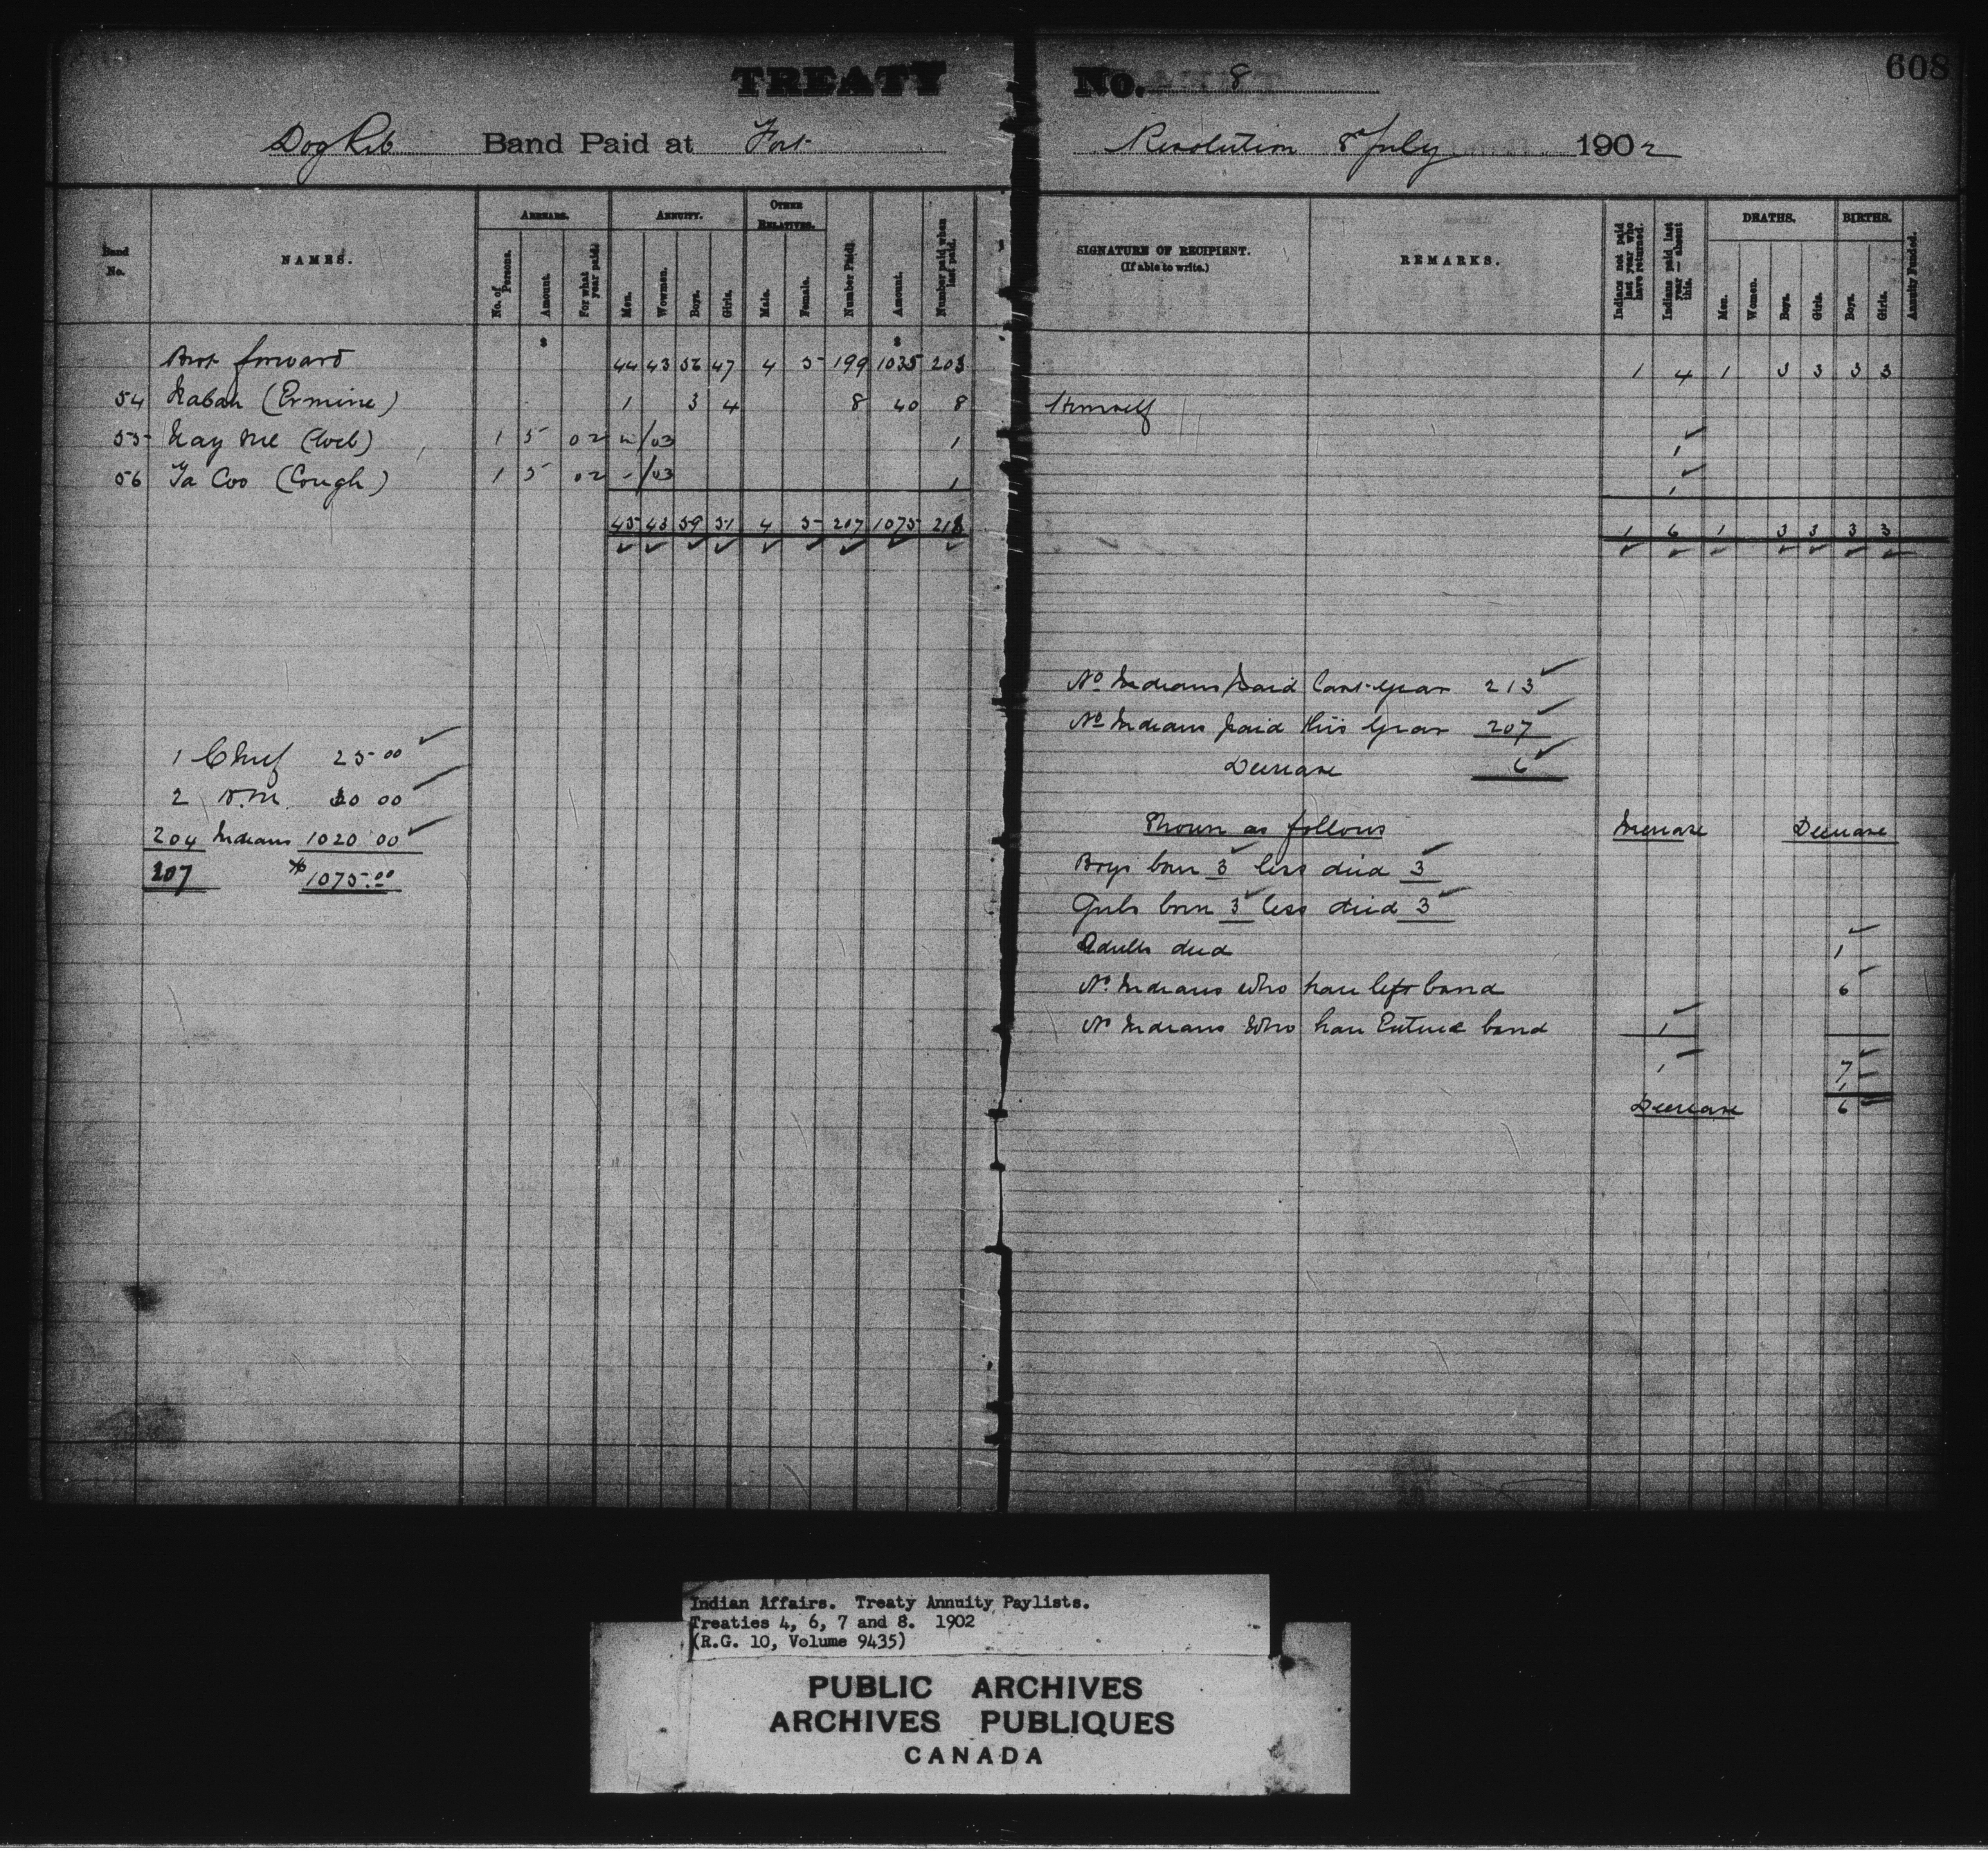 TREATY No. 8
608
Dog Rib Band Paid at Fort Resolution 8 July 1902
Band No.
NAMES.
ARREARS.
No. of Persons.
Amount.
For what year paid.
ANNUITY.
Men.
Women.
Boys.
Girls.
OTHER RELATIVES.
Male.
Female.
Number Paid.
Amount.
Number paid when last paid.
SIGNATURE OF RECIPIENT.
(If able to write.)
REMARKS.
Indians not paid last year who have returned.
Indians paid last year—absent this.
DEATHS.
Men.
Women.
Boys.
Girls.
BIRTHS.
Boys.
Girls.
Annuity Funded.
$ $
Brot forward 44 43 56 47 4 5 199 1035 203 1 4 1 3 3 3 3
54 (Ermine) 1 3 4 8 40 8 Himself
55 1 5 02 /03 1 1
56 Ya Coo (Cough) 1 5 02 /03 1 1
45 43 59 51 4 5 207 1075 213 1 6 1 3 3 3 3
1 Chief 25 00
2 H.M. 30 00
204 Indians 1020 00
207 $1075.00
No Indians paid last year 213
No Indians paid this year 207
Decrease 6
Shown as follows Increase Decrease
Boys born 3 less died 3
Girls born 3 less died 3
Adults died 1
No Indians who have left band 6
No Indians who have Entered band 1
1 7
1
Decrease 6
Indian Affairs. Treaty Annuity Paylists.
Treaties 4, 6, 7 and 8. 1902
(R.G. 10, Volume 9435)
PUBLIC ARCHIVES
ARCHIVES PUBLIQUES
CANADA